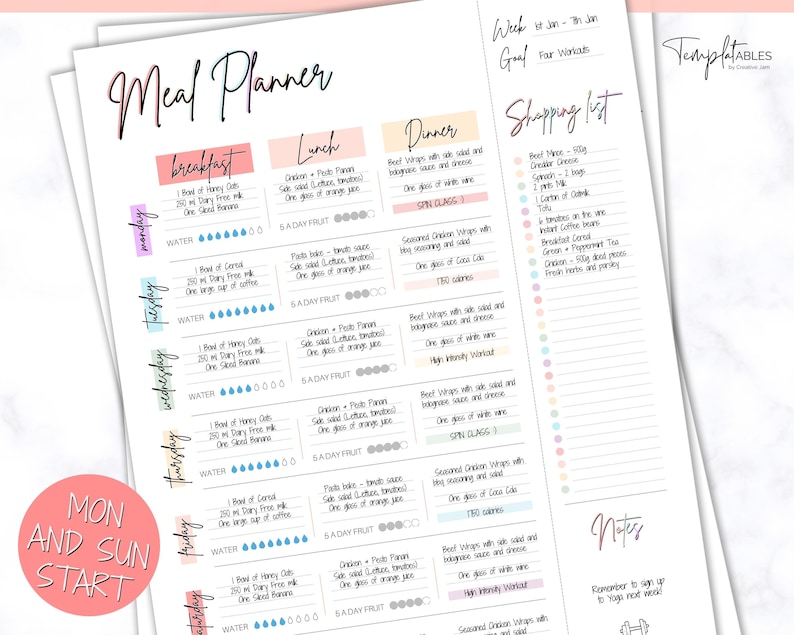 TemplatABLES
by Creative Jam
Meal Planner
Week 1st Jan - 7th Jan
Goal Four Workouts
breakfast
Lunch
Dinner
monday
1 Bowl of Honey Oats
250 ml Dairy Free milk
One Sliced Banana
WATER
Chicken + Pesto Panani
Side salad (Lettuce, tomatoes)
One glass of orange juice
5 A DAY FRUIT
Beef Wraps with side salad and
bolognase sauce and cheese
One glass of white wine
SPIN CLASS :)
tuesday
1 Bowl of Cereal
250 ml Dairy Free milk
One large cup of coffee
WATER
Pasta bake - tomato sauce
Side salad (Lettuce, tomatoes)
One glass of orange juice
5 A DAY FRUIT
Seasoned Chicken Wraps with
bbq seasoning and salad
One glass of Coca Cola
1750 calories
wednesday
1 Bowl of Honey Oats
250 ml Dairy Free milk
One Sliced Banana
WATER
Chicken + Pesto Panani
Side salad (Lettuce, tomatoes)
One glass of orange juice
5 A DAY FRUIT
Beef Wraps with side salad and
bolognase sauce and cheese
One glass of white wine
High Intensity Workout
thursday
1 Bowl of Honey Oats
250 ml Dairy Free milk
One Sliced Banana
WATER
Chicken + Pesto Panani
Side salad (Lettuce, tomatoes)
One glass of orange juice
5 A DAY FRUIT
Beef Wraps with side salad and
bolognase sauce and cheese
One glass of white wine
SPIN CLASS :)
friday
1 Bowl of Cereal
250 ml Dairy Free milk
One large cup of coffee
WATER
Pasta bake - tomato sauce
Side salad (Lettuce, tomatoes)
One glass of orange juice
5 A DAY FRUIT
Seasoned Chicken Wraps with
bbq seasoning and salad
One glass of Coca Cola
1750 calories
saturday
1 Bowl of Honey Oats
250 ml Dairy Free milk
One Sliced Banana
WATER
Chicken + Pesto Panani
Side salad (Lettuce, tomatoes)
One glass of orange juice
5 A DAY FRUIT
Beef Wraps with side salad and
bolognase sauce and cheese
One glass of white wine
High Intensity Workout
Shopping list
Beef Mince - 500g
Cheddar Cheese
Spinach - 2 bags
2 pints Milk
1 Carton of Oatmilk
Tofu
6 tomatoes on the vine
Instant Coffee beans
Breakfast Cereal
Green + Peppermint Tea
Chicken - 500g diced pieces
Fresh herbs and parsley
Notes
Remember to sign up
to Yoga next week!
MON
AND SUN
START